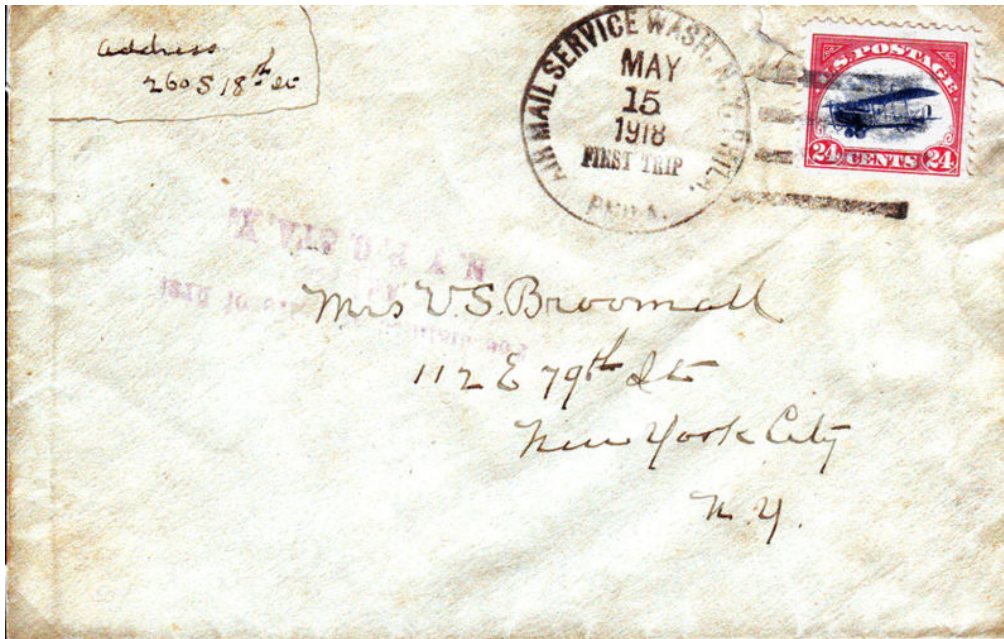 address
260 S 18th St
AIR MAIL SERVICE WASH. N.Y. PHILA.
MAY
15
1918
FIRST TRIP
PHILA.
U.S. POSTAGE
24 CENTS 24
N.Y. P.O. STA. K.
Mrs V.S. Broomall
112 E 79th St
New York City
N.Y.